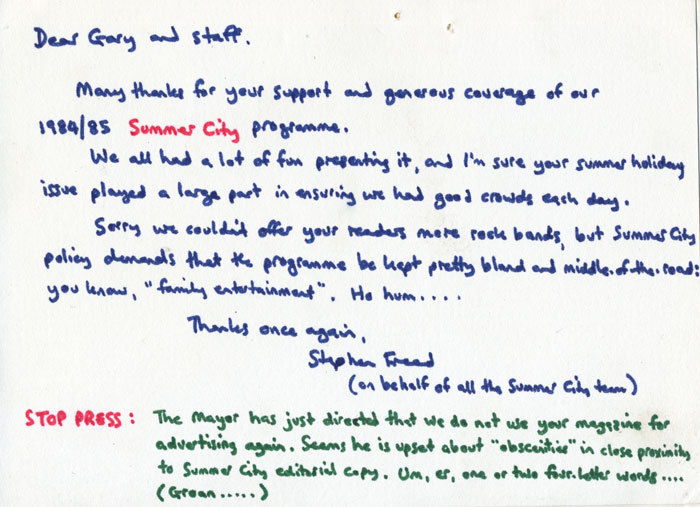 Dear Gary and staff.
Many thanks for your support and generous coverage of our
1984/85 Summer City programme.
We all had a lot of fun presenting it, and I'm sure your summer holiday
issue played a large part in ensuring we had good crowds each day.
Sorry we couldn't offer your readers more rock bands, but Summer City
policy demands that the programme be kept pretty bland and middle-of-the-road:
you know, "family entertainment". Ho hum....
Thanks once again,
Stephen Freed
(on behalf of all the Summer City team)
STOP PRESS: The Mayor has just directed that we do not use your magazine for
advertising again. Seems he is upset about "obscenities" in close proximity
to Summer City editorial copy. Um, er, one or two four-letter words....
(Groan.....)